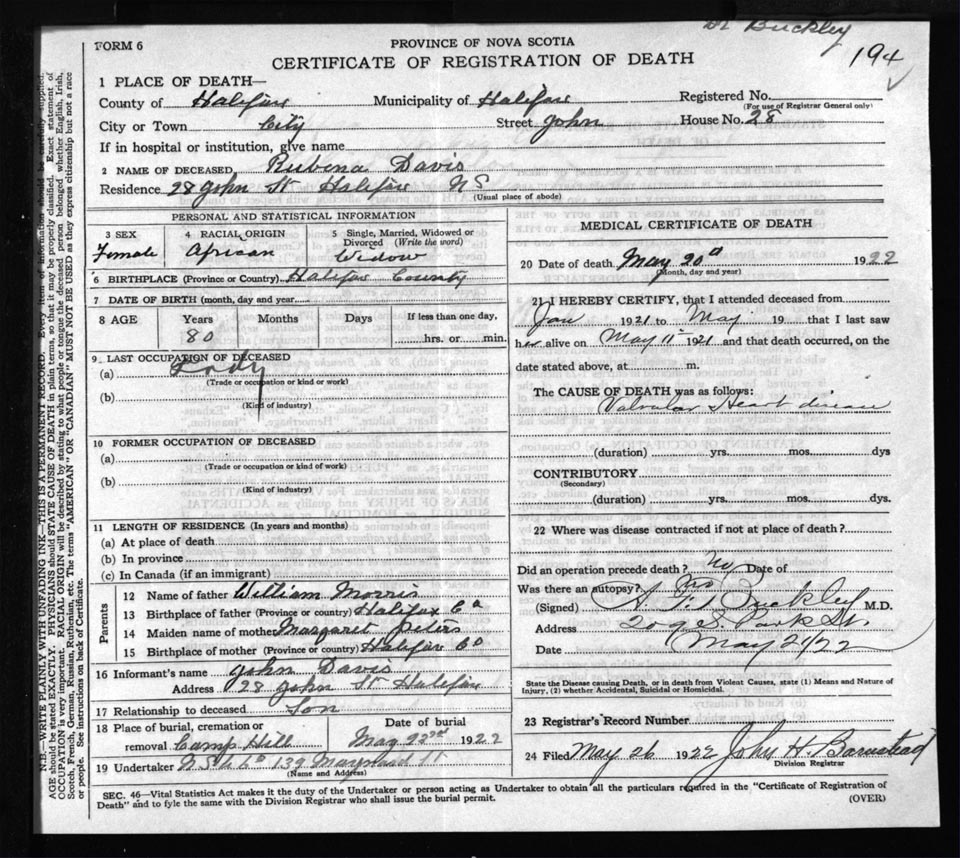 Dr Buckley
FORM 6
PROVINCE OF NOVA SCOTIA
194
CERTIFICATE OF REGISTRATION OF DEATH
1 PLACE OF DEATH—
County of Halifax Municipality of Halifax Registered No.
(For use of Registrar General only)
City or Town City Street John House No. 28
If in hospital or institution, give name
2 NAME OF DECEASED Rubena Davis
Residence 28 John St Halifax NS
(Usual place of abode)
PERSONAL AND STATISTICAL INFORMATION
3 SEX 4 RACIAL ORIGIN 5 Single, Married, Widowed or Divorced (Write the word)
Female African Widow
6 BIRTHPLACE (Province or Country) Halifax County
7 DATE OF BIRTH (month, day and year)
8 AGE Years Months Days If less than one day,
80 hrs. or min.
9 LAST OCCUPATION OF DECEASED
(a) Lady
(Trade or occupation or kind or work)
(b)
(Kind of industry)
10 FORMER OCCUPATION OF DECEASED
(a)
(Trade or occupation or kind of work)
(b)
(Kind of industry)
11 LENGTH OF RESIDENCE (In years and months)
(a) At place of death
(b) In province
(c) In Canada (if an immigrant)
Parents
12 Name of father William Morris
13 Birthplace of father (Province or country) Halifax Co
14 Maiden name of mother Margaret Peters
15 Birthplace of mother (Province or country) Halifax Co
16 Informant's name John Davis
Address 28 John St Halifax
17 Relationship to deceased Son
18 Place of burial, cremation or Date of burial
removal Camp Hill May 23rd 1922
19 Undertaker 139 Maynard St
(Name and Address)
MEDICAL CERTIFICATE OF DEATH
20 Date of death May 20th 1922
(Month, day and year)
21 I HEREBY CERTIFY, that I attended deceased from
Jan 1921 to May 19 that I last saw
her alive on May 11th 1921 and that death occurred, on the
date stated above, at m.
The CAUSE OF DEATH was as follows:
Valvular Heart disease
(duration) yrs. mos. dys
CONTRIBUTORY
(Secondary)
(duration) yrs. mos. dys.
22 Where was disease contracted if not at place of death?
Did an operation precede death? No Date of
Was there an autopsy? no
(Signed) Buckley M.D.
Address 209 S. Park St.
Date May 21/22
State the Disease causing Death, or in death from Violent Causes, state (1) Means and Nature of
Injury, (2) whether Accidental, Suicidal or Homicidal.
23 Registrar's Record Number
24 Filed May 26 1922 John H. Barnstead
Division Registrar
SEC. 46—Vital Statistics Act makes it the duty of the Undertaker or person acting as Undertaker to obtain all the particulars required in the "Certificate of Registration of
Death" and to fyle the same with the Division Registrar who shall issue the burial permit. (OVER)
N.B.—WRITE PLAINLY WITH UNFADING INK—THIS IS A PERMANENT RECORD. Every item of information should be carefully supplied.
AGE should be stated EXACTLY. PHYSICIANS should STATE CAUSE OF DEATH in plain terms, so that it may be properly classified. Exact statement of
OCCUPATION is very important. RACIAL ORIGIN will be described by stating to what people or tongue the deceased person belonged, whether English, Irish,
Scotch, French, German, Russian, Ruthenian, etc. The terms "AMERICAN" or "CANADIAN" MUST NOT BE USED as they express citizenship but not a race
or people. See instructions on back of Certificate.